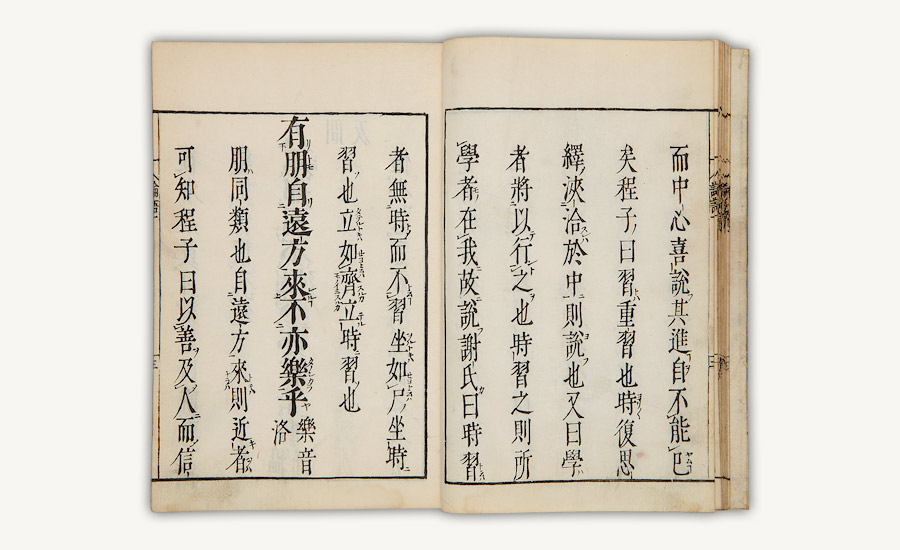 而中心喜說其進自不能已
矣程子曰習重習也時復思
繹浹洽於中則說也又曰學
者將以行之也時習之則所
學者在我故說謝氏曰時習
者無時而不習坐如尸坐時
習也立如齊立時習也
有朋自遠方來不亦樂乎樂音洛
朋同類也自遠方來則近者
可知程子曰以善及人而信